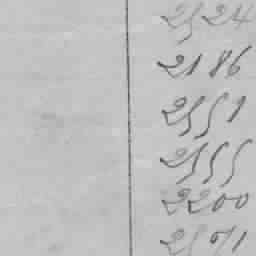 2524
2186
2551
2555
2200
2571